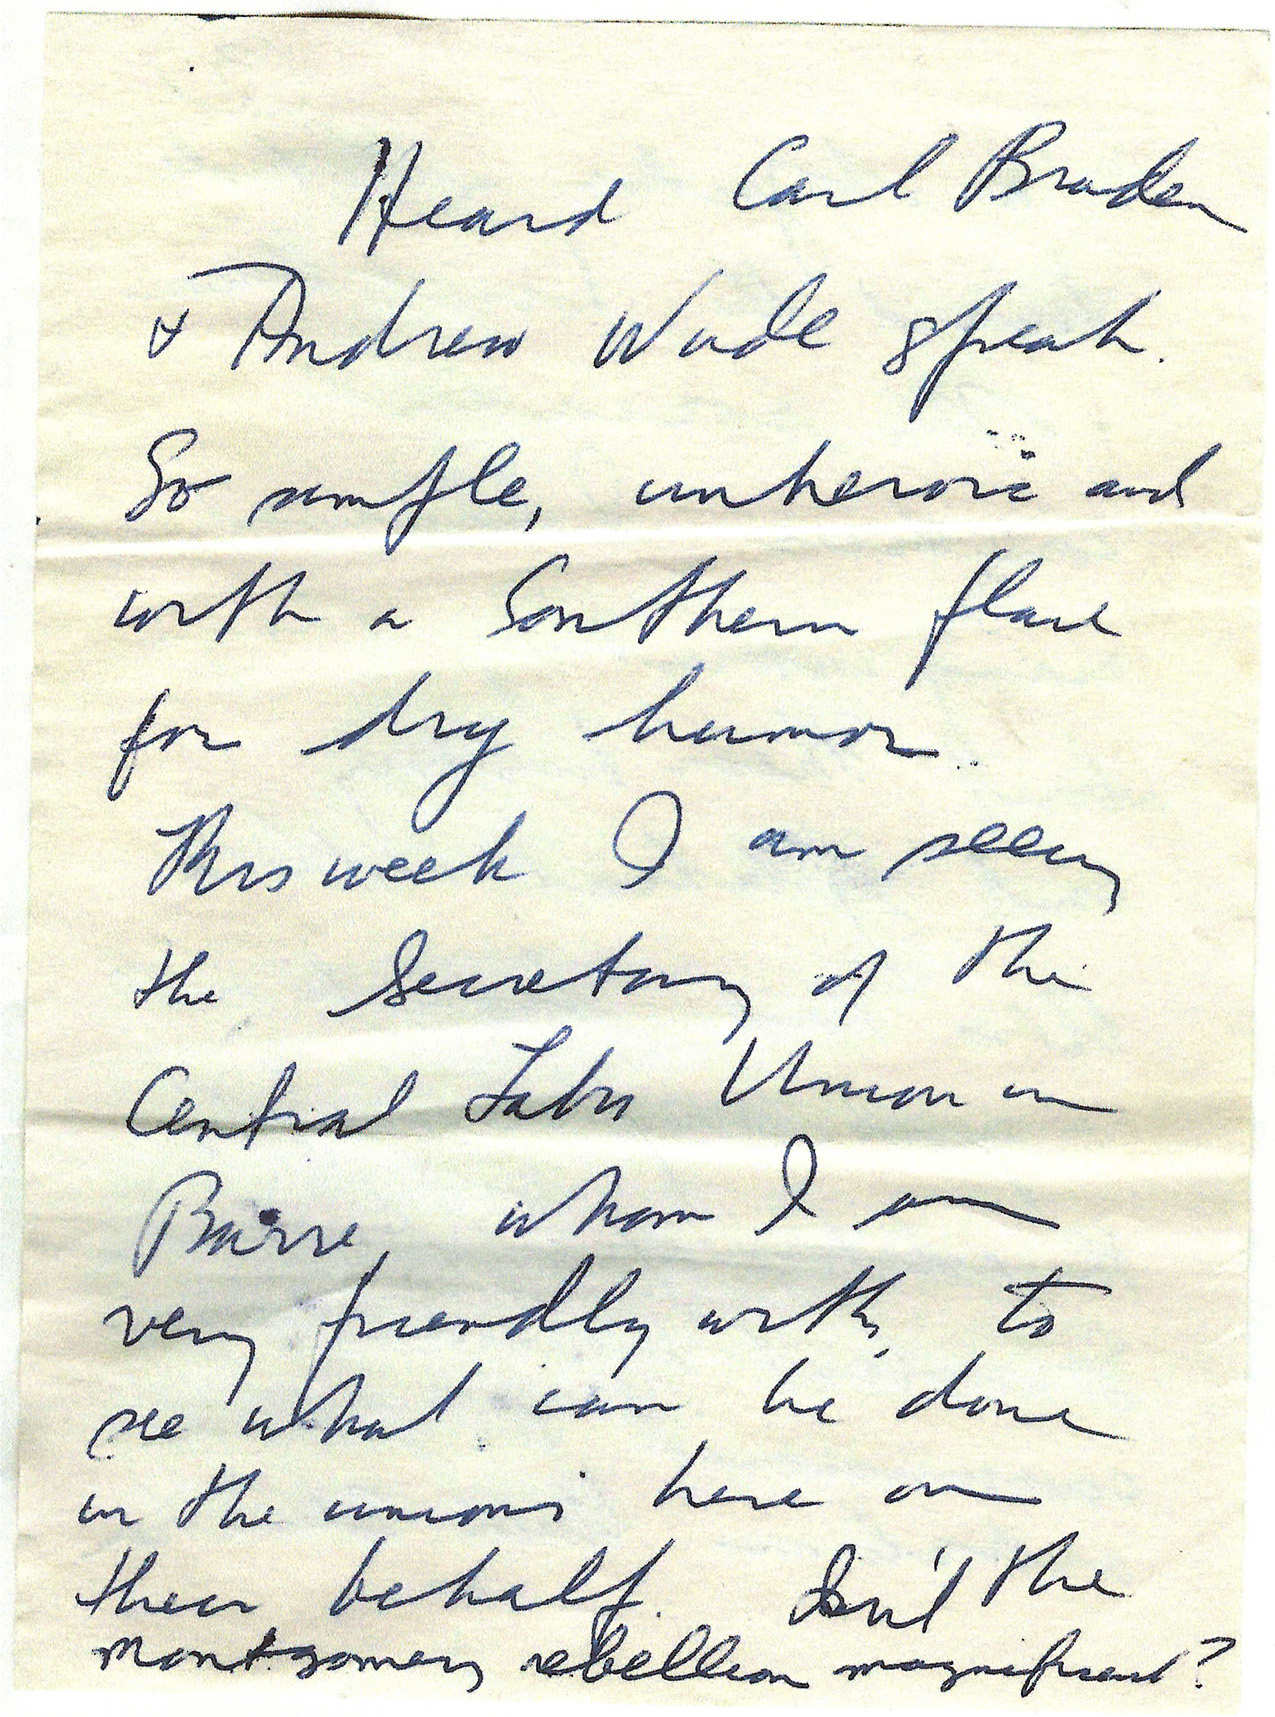 Heard Carl Braden
+ Andrew Wade speak.
So simple, unheroic and
with a Southern flare
for dry humor.
This week I am seeing
the Secretary of the
Central Labor Union in
Barre, whom I am
very friendly with, to
see what can be done
in the unions here on
their behalf. Isn't the
Montgomery rebellion magnificent?